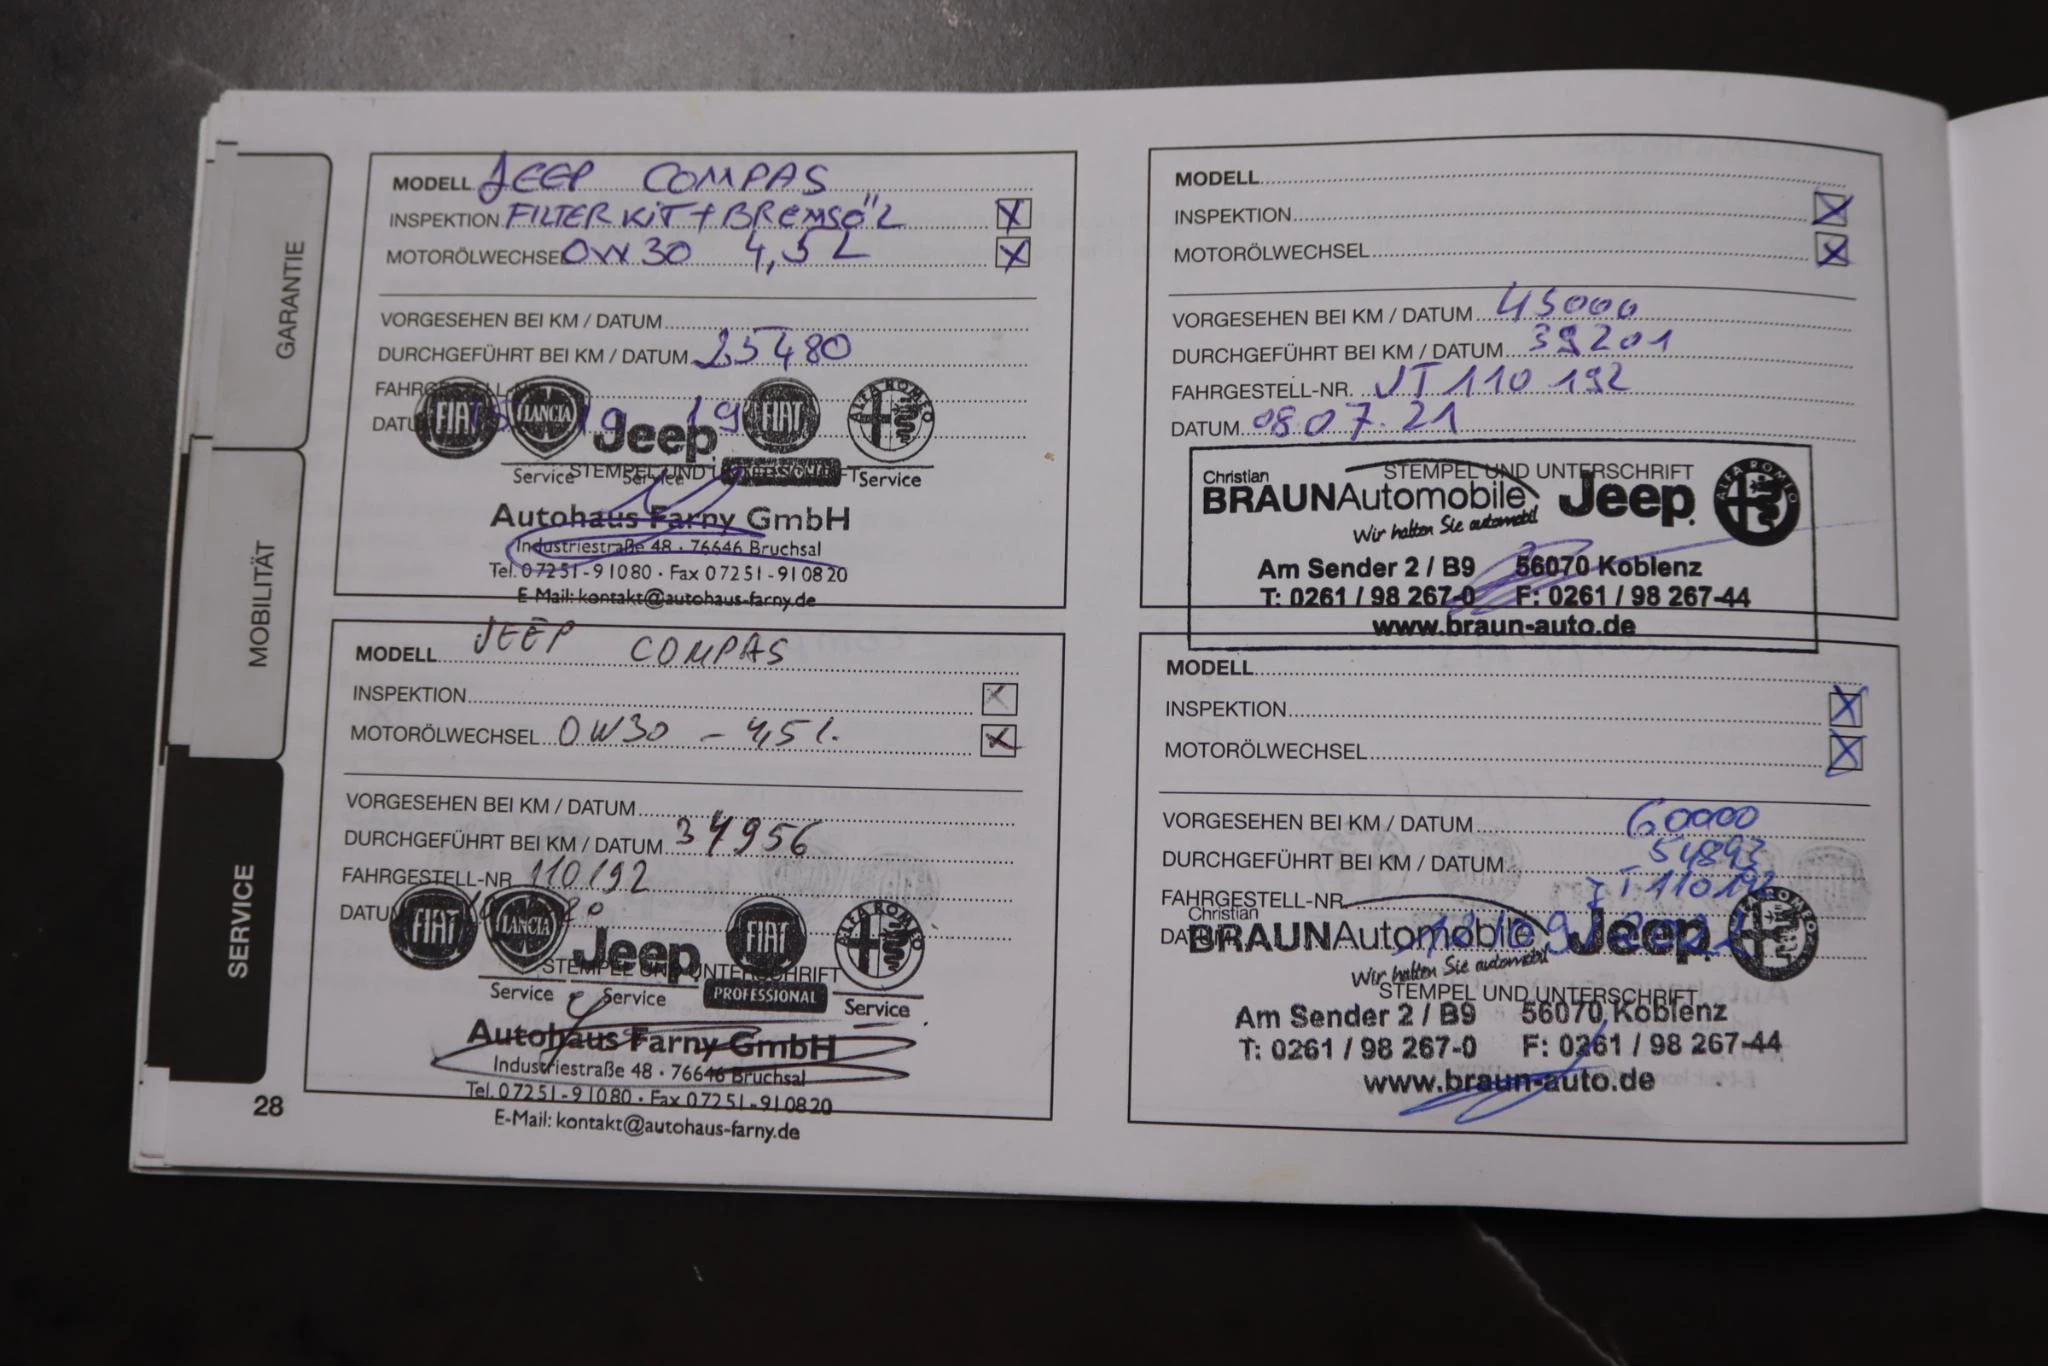 GARANTIE
MOBILITÄT
SERVICE
28
MODELL JEEP COMPAS
INSPEKTION FILTER KIT + BREMSÖL X
MOTORÖLWECHSEL 0W30 4,5 L X
VORGESEHEN BEI KM / DATUM
DURCHGEFÜHRT BEI KM / DATUM 25480
FAHRGESTELL-NR.
DATUM 19
FIAT LANCIA Jeep FIAT ALFA ROMEO
STEMPEL UND
Service Service Service
Autohaus Farny GmbH
Industriestraße 48 · 76646 Bruchsal
Tel. 07251-91080 · Fax 07251-910820
E-Mail: kontakt@autohaus-farny.de
MODELL JEEP COMPAS
INSPEKTION X
MOTORÖLWECHSEL 0W30 - 4,5 l. X
VORGESEHEN BEI KM / DATUM
DURCHGEFÜHRT BEI KM / DATUM 34956
FAHRGESTELL-NR 110192
DATUM
FIAT LANCIA Jeep FIAT ALFA ROMEO
STEMPEL UND UNTERSCHRIFT
Service Service PROFESSIONAL Service
Autohaus Farny GmbH
Industriestraße 48 · 76646 Bruchsal
Tel. 07251-91080 · Fax 07251-910820
E-Mail: kontakt@autohaus-farny.de
MODELL
INSPEKTION X
MOTORÖLWECHSEL X
VORGESEHEN BEI KM / DATUM 45000
DURCHGEFÜHRT BEI KM / DATUM 39201
FAHRGESTELL-NR. JT110192
DATUM 08.07.21
STEMPEL UND UNTERSCHRIFT
Christian
BRAUNAutomobile Jeep ALFA ROMEO
Wir halten Sie automobil
Am Sender 2 / B9 56070 Koblenz
T: 0261 / 98 267-0 F: 0261 / 98 267-44
www.braun-auto.de
MODELL
INSPEKTION X
MOTORÖLWECHSEL X
VORGESEHEN BEI KM / DATUM 60000
DURCHGEFÜHRT BEI KM / DATUM 54893
FAHRGESTELL-NR. JT110192
Christian
DATUM
BRAUNAutomobile Jeep ALFA ROMEO
Wir halten Sie automobil
STEMPEL UND UNTERSCHRIFT
Am Sender 2 / B9 56070 Koblenz
T: 0261 / 98 267-0 F: 0261 / 98 267-44
www.braun-auto.de